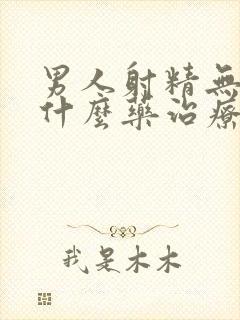 男人射精無
什麼藥治療
我是木木